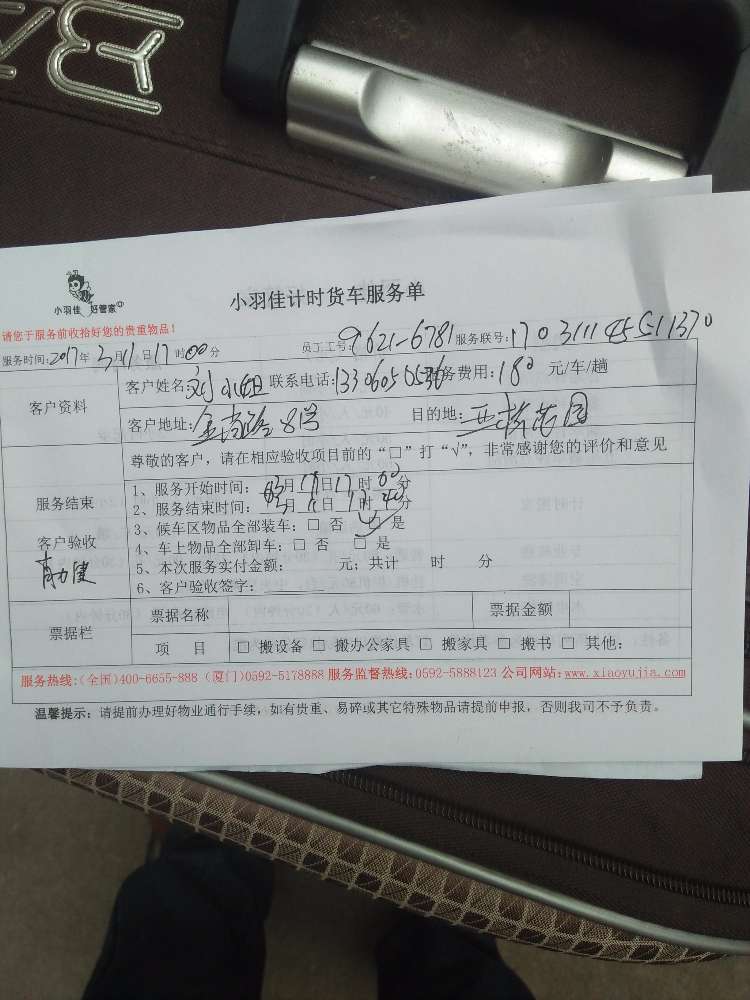 小羽佳 好管家
小羽佳计时货车服务单
请您于服务前收拾好您的贵重物品!
服务时间:2017年3月11日17时00分 员工工号:9621-6781 服务联号:170311145511370
客户资料
客户姓名:刘小姐 联系电话: 服务费用:180 元/车/趟
客户地址:金尚路8号 目的地:
尊敬的客户,请在相应验收项目前的“□”打“√”,非常感谢您的评价和意见
服务结束
客户验收
1、服务开始时间:03月11日17时00分
2、服务结束时间:03月11日17时40分
3、候车区物品全部装车:□ 否 □ 是
4、车上物品全部卸车:□ 否 □ 是
5、本次服务实付金额: 元;共计 时 分
6、客户验收签字:
票据栏
票据名称 票据金额
项 目 □ 搬设备 □ 搬办公家具 □ 搬家具 □ 搬书 □ 其他:
服务热线:(全国)400-6655-888 (厦门)0592-5178888 服务监督热线:0592-5888123 公司网站:www.xiaoyujia.com
温馨提示:请提前办理好物业通行手续,如有贵重、易碎或其它特殊物品请提前申报,否则我司不予负责。